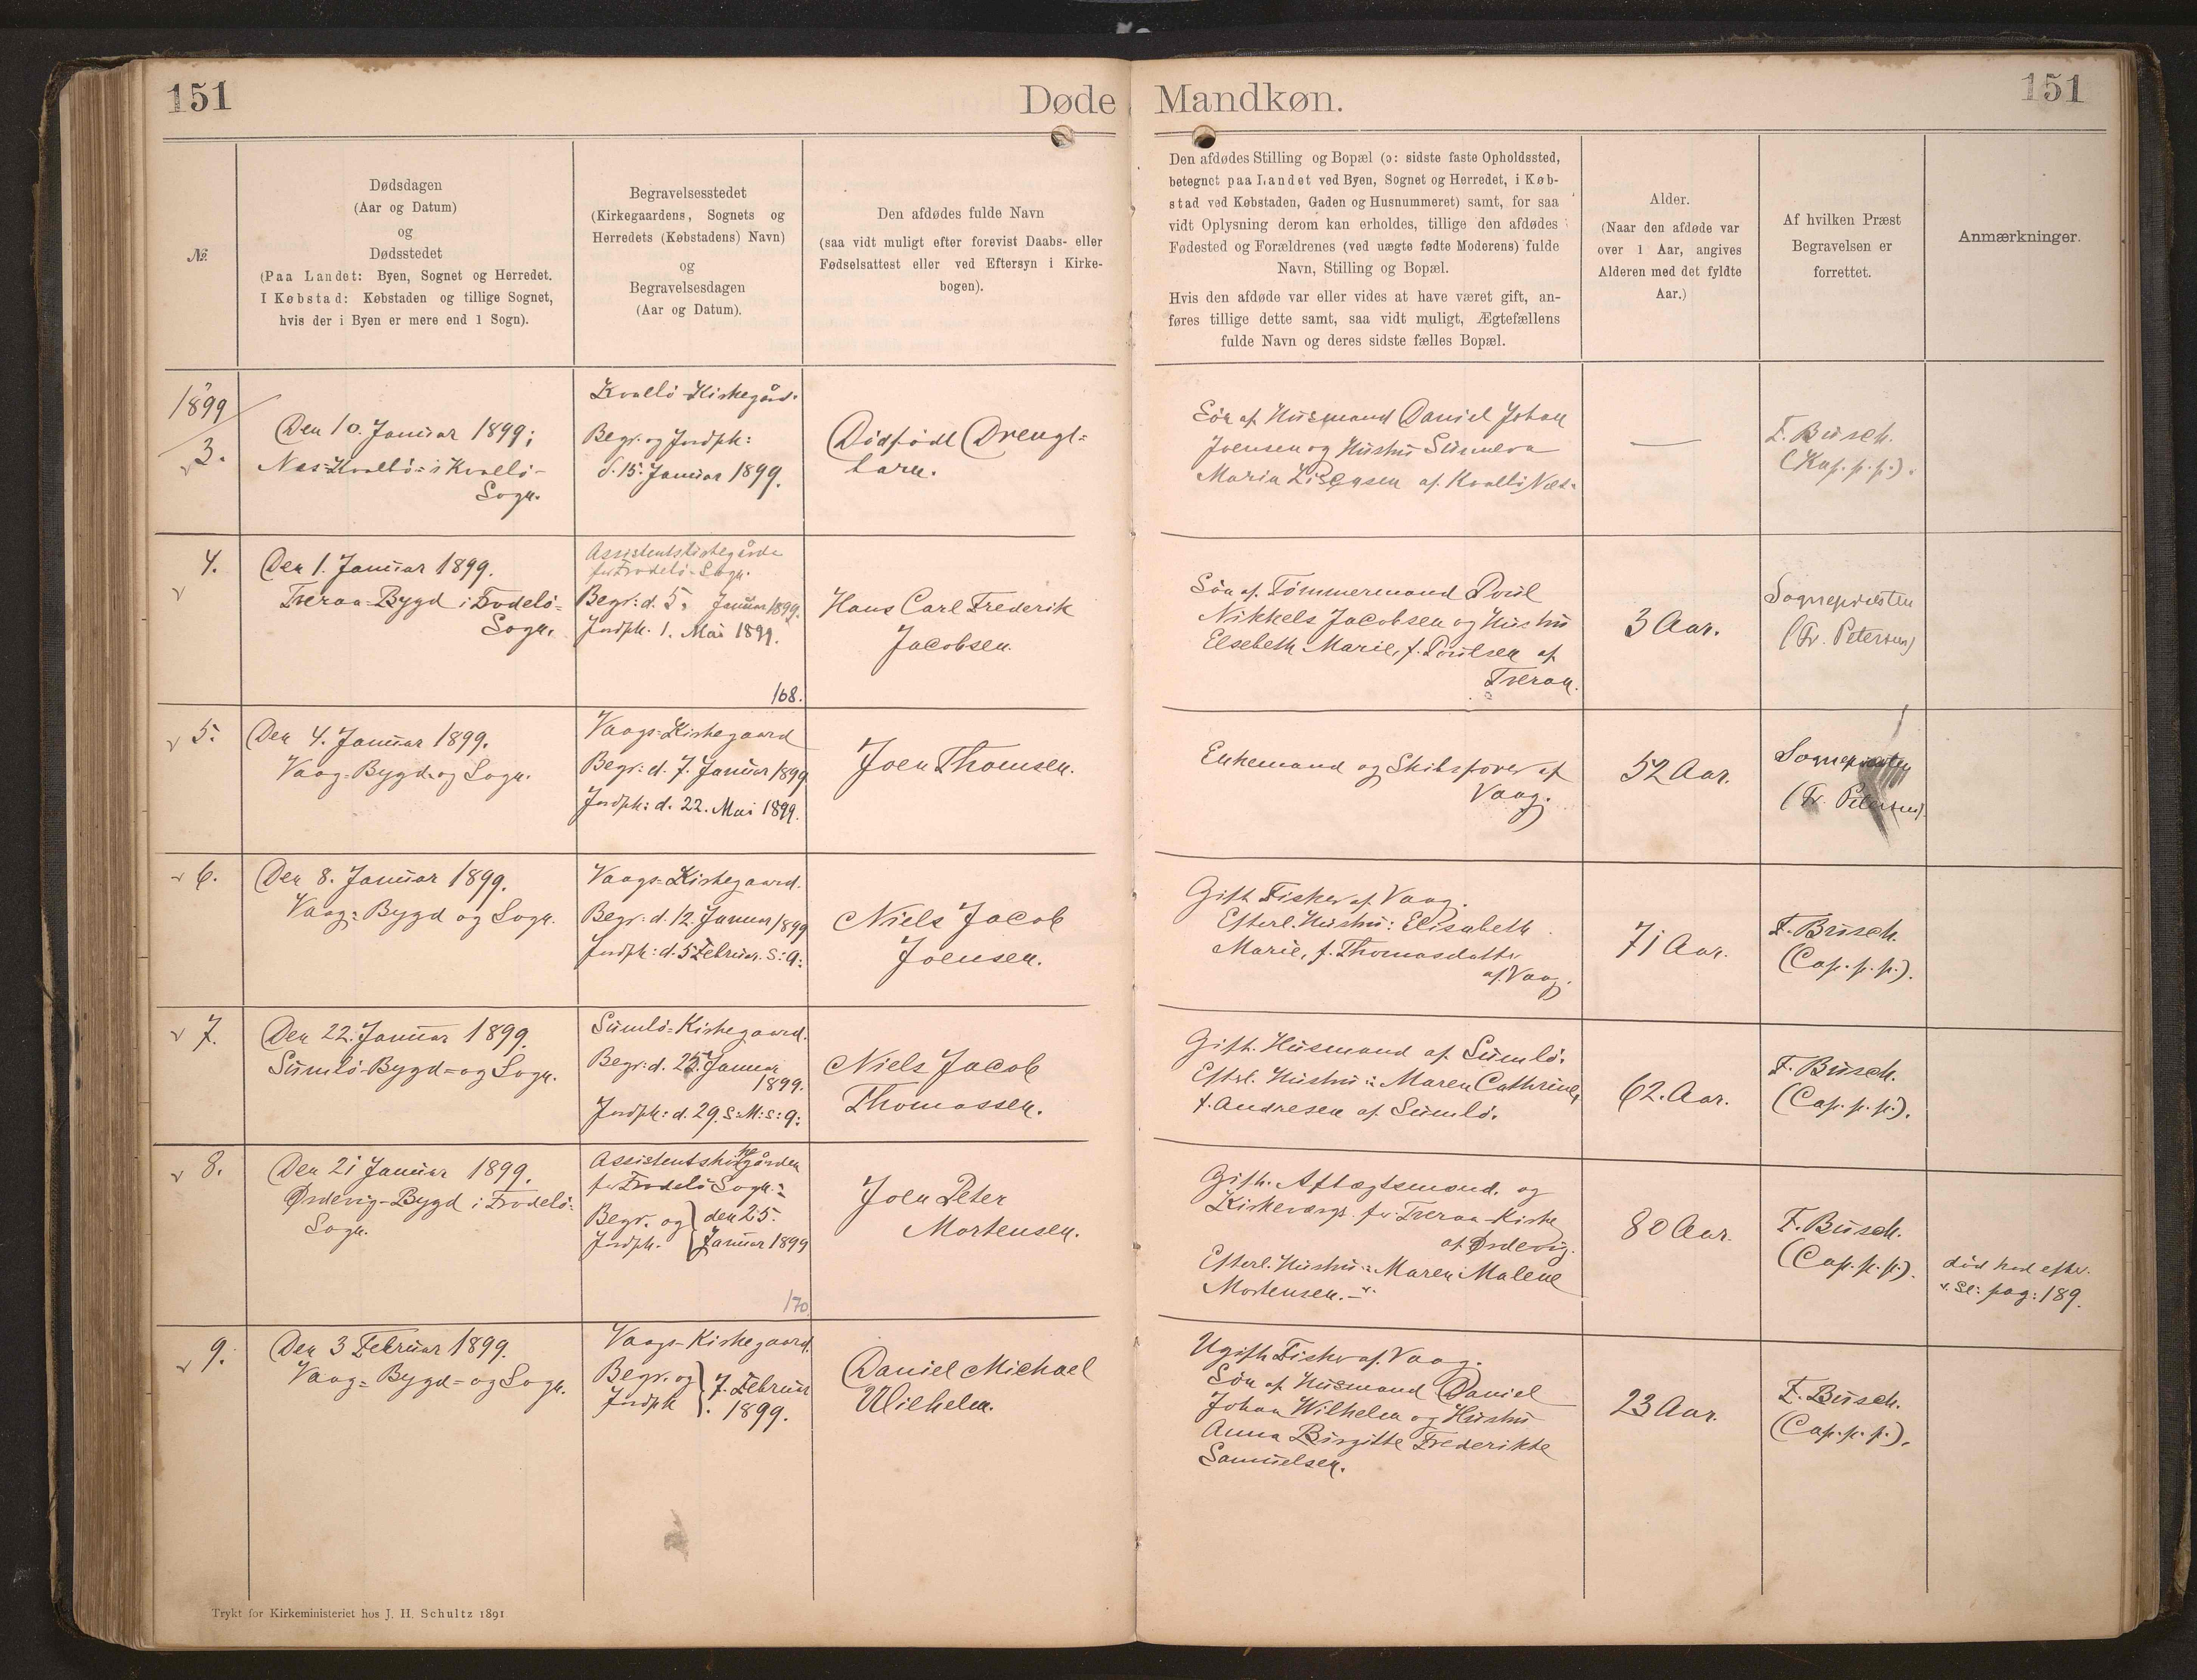 151
Døde Mandkøn.
151
№.
Dødsdagen
(Aar og Datum)
og
Dødsstedet
(Paa Landet: Byen, Sognet og Herredet.
I Købstad: Købstaden og tillige Sognet,
hvis der i Byen er mere end 1 Sogn).
Begravelsesstedet
(Kirkegaardens, Sognets og
Herredets (Købstadens) Navn)
og
Begravelsesdagen
(Aar og Datum).
Den afdødes fulde Navn
(saa vidt muligt efter forevist Daabs- eller
Fødselsattest eller ved Eftersyn i Kirke-
bogen).
Den afdødes Stilling og Bopæl (ɔ: sidste faste Opholdssted,
betegnet paa Landet ved Byen, Sognet og Herredet, i Køb-
stad ved Købstaden, Gaden og Husnummeret) samt, for saa
vidt Oplysning derom kan erholdes, tillige den afdødes
Fødested og Forældrenes (ved uægte fødte Moderens) fulde
Navn, Stilling og Bopæl.
Hvis den afdøde var eller vides at have været gift, an-
føres tillige dette samt, saa vidt muligt, Ægtefællens
fulde Navn og deres sidste fælles Bopæl.
Alder.
(Naar den afdøde var
over 1 Aar, angives
Alderen med det fyldte
Aar.)
Af hvilken Præst
Begravelsen er
forrettet.
Anmærkninger.
1899
3.
Den 10. Januar 1899;
Næs-Kvalbö- i Kvalbö-
Sogn.
Kvalbö-Kirkegård.
Begr. og Jordpk:
d. 15. Januar 1899.
Dödfödt Drenge-
barn.
Sön af Husmand Daniel Johan
Joensen og Hustru Sunneva
Maria af Kvalbö Næs.
—
F. Busch.
(Kap. p. p.).
4.
Den 1. Januar 1899.
Tveraa-Bygd i Frodebö-
Sogn.
Assistentskirkegården
for Frodebö-Sogn.
Begr: d. 5. Januar 1899.
Jordpk. 1. Mai 1899.
168.
Hans Carl Frederik
Jacobsen.
Sön af Tömmermand Poul
Nikkels Jacobsen og Hustru
Elsebeth Marie, f. Poulsen af
Tveraa.
3 Aar.
Sognepræsten
(Fr. Petersen)
5.
Den 4. Januar 1899.
Vaag-Bygd-og Sogn.
Vaags-Kirkegaard
Begr: d. 7. Januar 1899
Jordpk: d. 22. Mai 1899.
Joen Thomsen.
Enkemand og Skibsförer af
Vaag.
52 Aar.
Sognepræsten
(Fr. Petersen).
6.
Den 8. Januar 1899.
Vaag-Bygd og Sogn.
Vaags-Kirkegaard.
Begr: d. 12. Januar 1899
Jordpk: d. 5 Februar. s: a:
Niels Jacob
Joensen.
Gift Fisker af Vaag.
Efterl. Hustru: Elisabeth
Marie, f. Thomasdatter
af Vaag.
71 Aar.
F. Busch.
(Cap. p. p.).
7.
Den 22. Januar 1899.
Sumbö-Bygd-og Sogn.
Sumbö-Kirkegaard.
Begr: d. 25. Januar
1899.
Jordpk: d. 29. s: M: s: a:
Niels Jacob
Thomassen.
Gift. Husmand af Sumbö.
Efterl. Hustru: Maren Cathrine,
f. Andresen af Sumbö.
62. Aar.
F. Busch.
(Cap. p. p.).
8.
Den 21 Januar 1899.
Ördevig-Bygd i Frodebö-
Sogn.
Assistentskirkegården
for Frodebö Sogn:
Begr. og } den 25.
Jordpk. } Januar 1899
170
Joen Peter
Mortensen.
Gift. Aftægtsmand. og
Kirkeværge for Tveraa-Kirke
af Ördevig.
Efterl. Hustru: Maren Malene
Mortensen.
80 Aar.
F. Busch.
(Cap. p. p.).
död
pag: 189.
9.
Den 3 Februar 1899.
Vaag-Bygd-og Sogn.
Vaags-Kirkegaard.
Begr. og } 7. Februar
Jordpk } 1899.
Daniel Michael
Wilhelm.
Ugift Fisker af Vaag.
Sön af Husmand Daniel
Johan Wilhelm og Hustru
Anna Birgitte Frederikke
Samuelsen.
23 Aar.
F. Busch.
(Cap. p. p.).
Trykt for Kirkeministeriet hos J. H. Schultz 1891